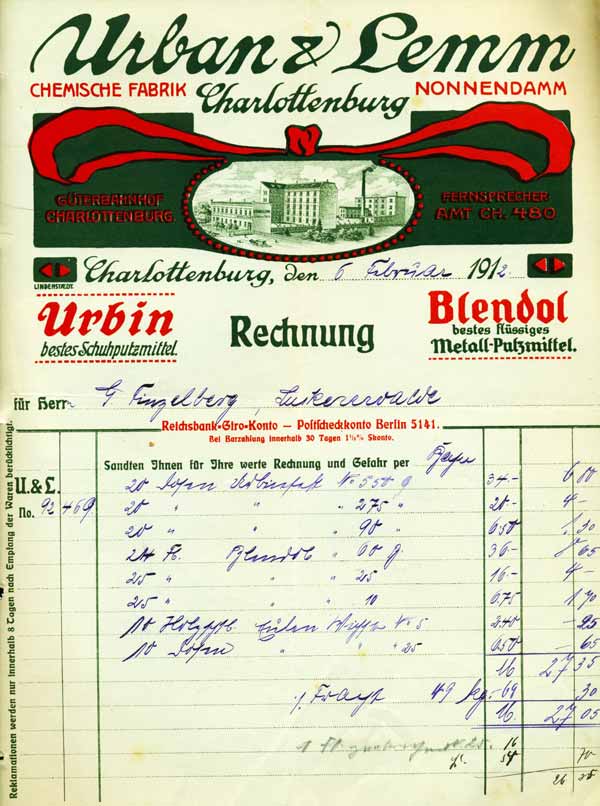 Urban & Lemm
CHEMISCHE FABRIK Charlottenburg NONNENDAMM
GÜTERBAHNHOF CHARLOTTENBURG.
FERNSPRECHER AMT CH. 480
LINDENSTAEDT
Charlottenburg, den 6 Februar 1912.
Urbin
bestes Schuhputzmittel.
Rechnung
Blendol
bestes flüssiges
Metall-Putzmittel.
für Herrn G Finzelberg, Luckenwalde
Reichsbank-Giro-Konto — Postscheckkonto Berlin 5141.
Bei Barzahlung innerhalb 30 Tagen 1½% Skonto.
Sandten Ihnen für Ihre werte Rechnung und Gefahr per
U. & L.
No. 92 469
20 Dosen No 550 g 34.- 6 80
20 " " " 275 " 20.- 4 -
20 " " " 90 " 650 1 30
24 Fl. Blendol " 60 g. 36-
25 " " " 25 16.- 4 -
25 " " " 10 675 1 70
10 " 5 240 - 25
10 Dosen " " 25 650 - 65
27 35
./. Fracht 49 kg. - 69 30
27 05
Reklamationen werden nur innerhalb 8 Tagen nach Empfang der Waren berücksichtigt.